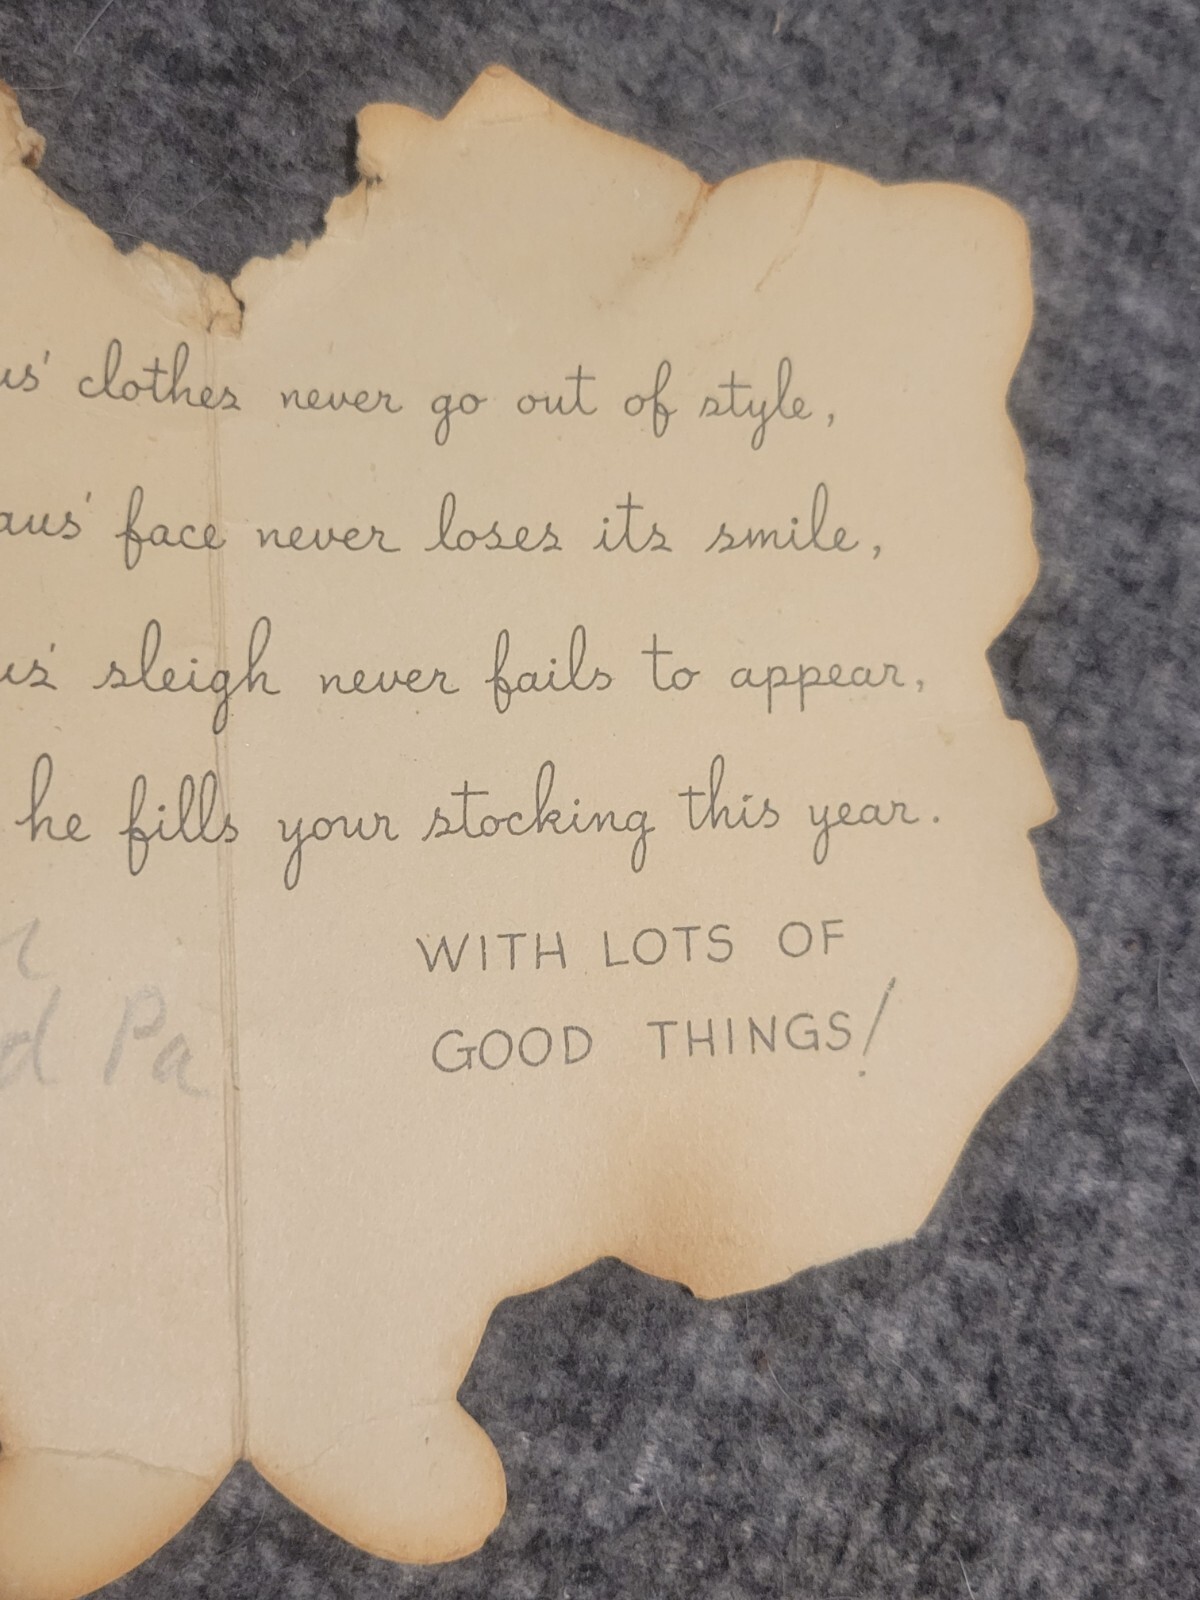 clothes never go out of style,
face never loses its smile,
sleigh never fails to appear,
he fills your stocking this year.
WITH LOTS OF
GOOD THINGS!
Pa